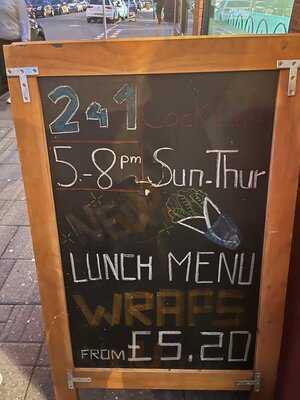 241 Cocktails
5-8pm Sun-Thur
NEW
LUNCH MENU
WRAPS
FROM £5.20